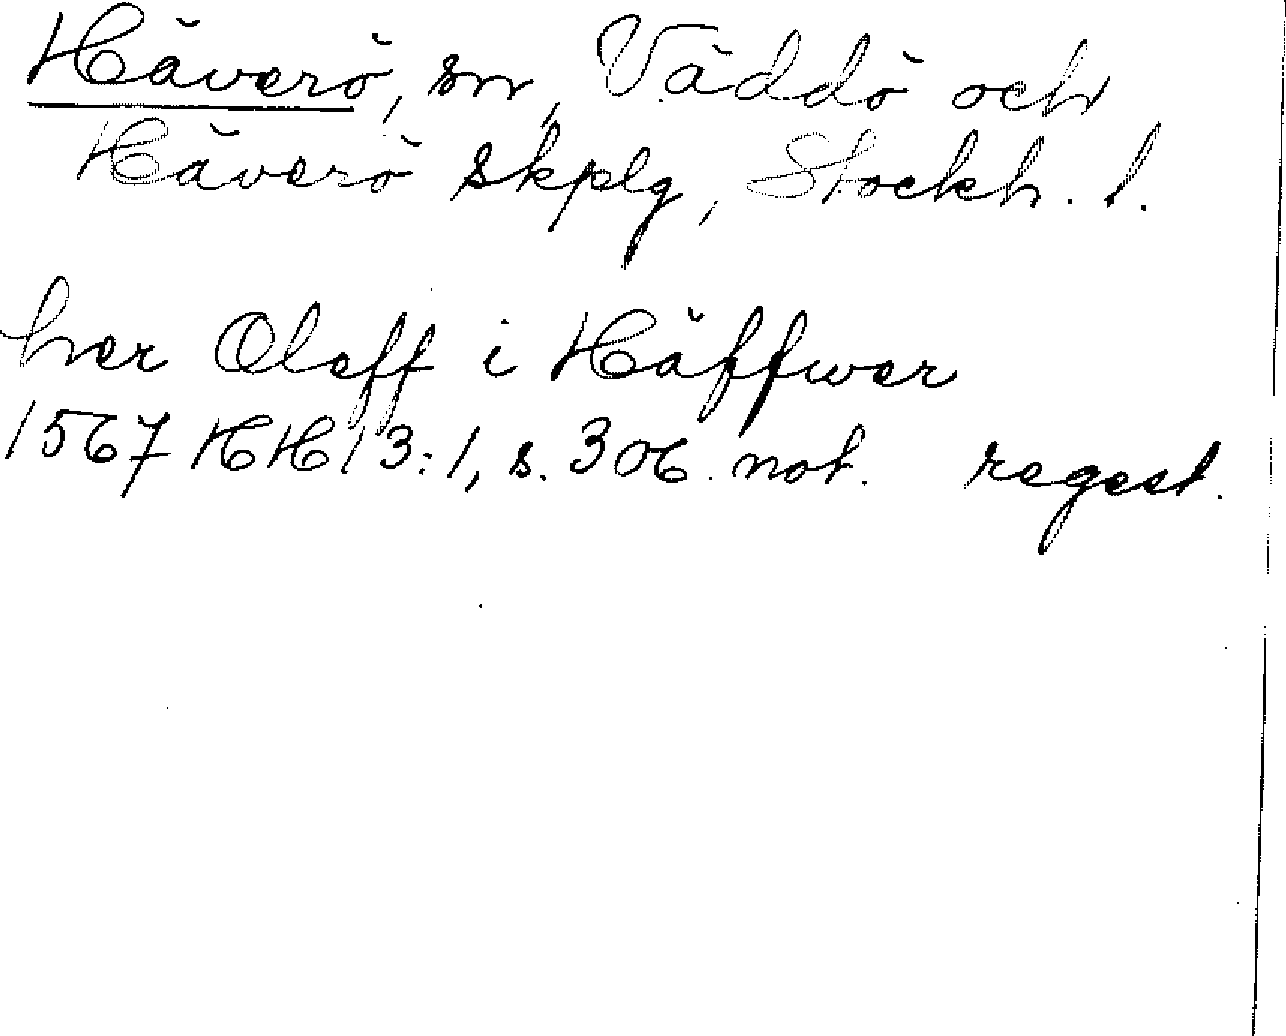 Häverö, sn, Väddö och
Häverö skplg, Stockh. l.
her Oleff i Häffwer
1567 HH 13:1, s. 306. not. regest.